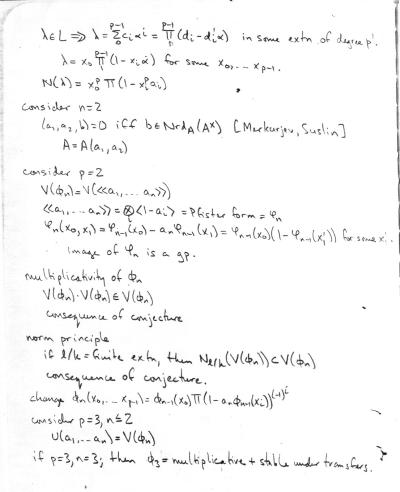 λ∈L ⇒ λ = Σ_0^{p-1} c_i α^i = Π_1^{p-1} (d_i - d_i'α) in some extn of degree p'.
λ = x_0 Π_1^{p-1} (1 - x_i α) for some x_0, ... x_{p-1}.
N(λ) = x_0^p Π (1 - x_i^p a_i)
consider n=2
(a_1, a_2, b) = 0 iff b∈Nrd_A(A^x) [Merkurjev, Suslin]
A = A(a_1, a_2)
consider p=2
V(ϕ_n) = V(<<a_1, ... a_n>>)
<<a_1, ... a_n>> = ⊗<1 - a_i> = Pfister form = φ_n
φ_n(x_0, x_1) = φ_{n-1}(x_0) - a_n φ_{n-1}(x_1) = φ_{n-1}(x_0)(1 - φ_{n-1}(x_1')) for some x'.
image of φ_n is a gp.
multiplicativity of ϕ_n
V(ϕ_n)·V(ϕ_n) ∈ V(ϕ_n)
consequence of conjecture
norm principle
if l/k = finite extn, then N_{l/k}(V(ϕ_n)) ⊂ V(ϕ_n)
consequence of conjecture.
change ϕ_n(x_0, ... x_{p-1}) = ϕ_{n-1}(x_0) Π (1 - a_n ϕ_{n-1}(x_i))^{(-1)^i}
consider p=3, n≤2
U(a_1, ... a_n) = V(ϕ_n)
if p=3, n=3, then ϕ_3 = multiplicative + stable under transfers.